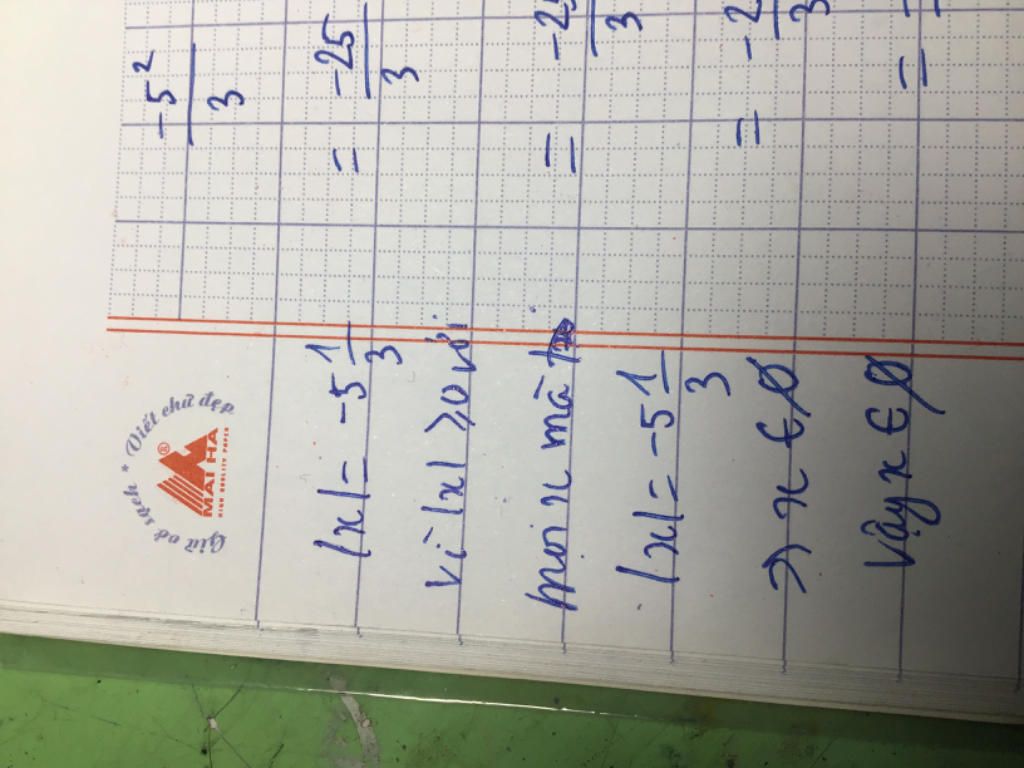 Giữ vở sạch * Viết chữ đẹp
®
MAI HA
HIGH QUALITY PAPER
|x| = -5 1/3
Vì |x| ≥ 0 với
mọi x mà
|x| = -5 1/3
=> x € ∅
Vậy x € ∅
-5²/3
= -25/3
=
3
= -2
3
=